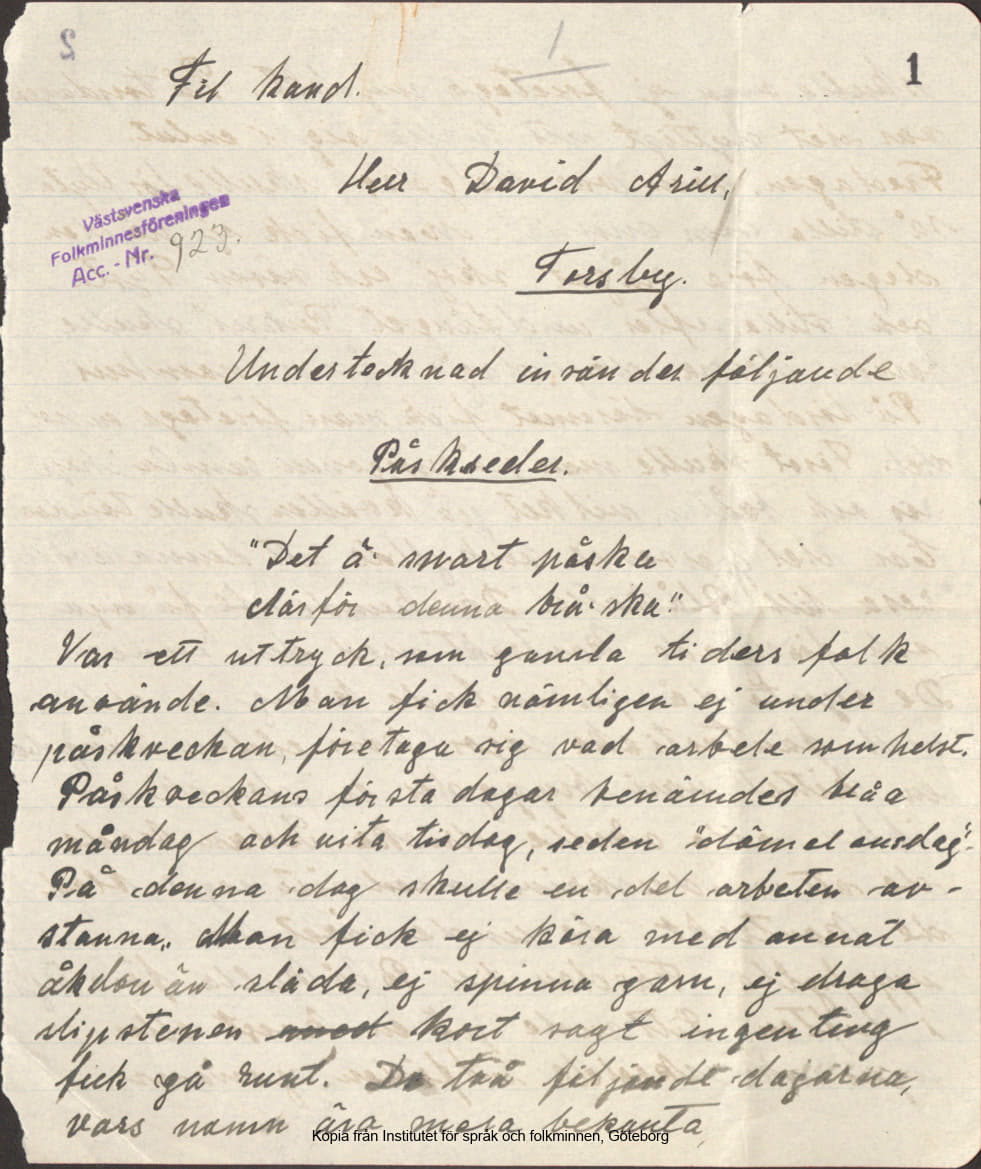 1
Fil kand.
Herr David Arill,
Västsvenska
Folkminnesföreningen
Acc. - Nr. 923.
Torsby.
Undertecknad insänder följande
Påskseder.
"Det ä' svart påska
därför denna brå-ska"
Var ett uttryck, som gamla tiders folk
använde. Man fick nämligen ej under
påskveckan, företaga sig vad arbete somhelst.
Påskveckans första dagar benämdes blåa
måndag och vita tisdag, sedan "dömelonsdag".
På denna dag skulle en del arbeten av-
stanna. Man fick ej köra med annat
åkdon än släda, ej spinna garn, ej draga
slipstenen med kort sagt ingenting
fick gå runt. De två följande dagarna,
vars namn äro mera bekanta,
Kopia från Institutet för språk och folkminnen, Göteborg